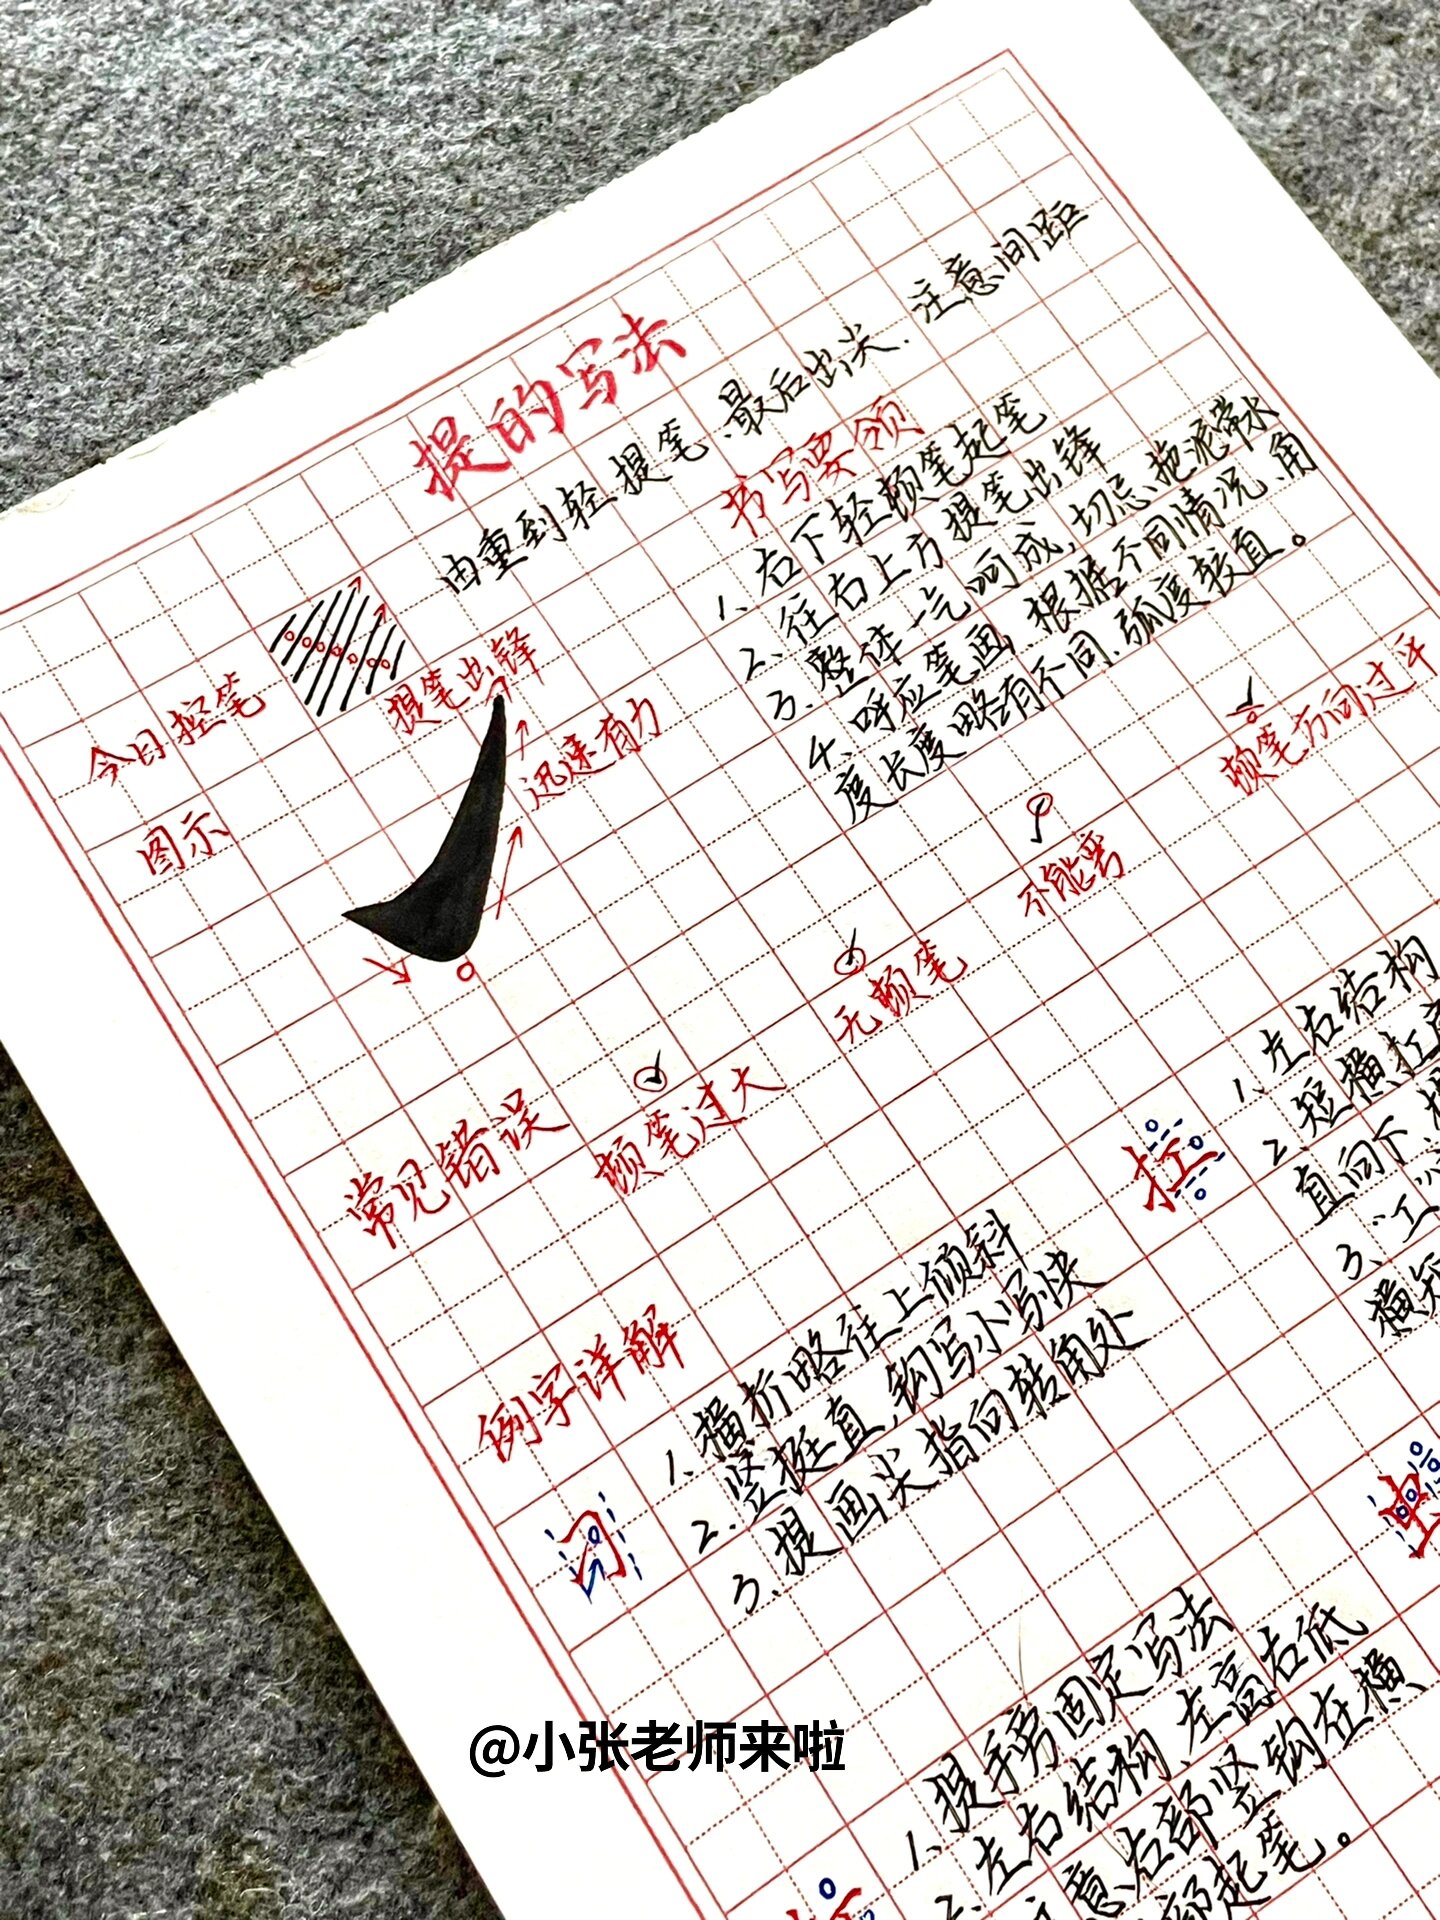 提的写法
今日控笔
由重到轻提笔、最后出尖. 注意间距
图示
提笔出锋
迅速有力
书写要领
1、右下轻顿笔起笔
2、往右上方提笔出锋
3、整体一气呵成，切忌拖泥带水
4、呼应笔画、根据不同情况、角
度长度略有不同、弧度较直。
常见错误
顿笔过大
无顿笔
不能弯
顿笔方向过平
例字详解
习
1、横折略往上倾斜
2.竖挺直，钩写小写快
3、提画尖指向转角处
扛
1、左右结构
2、短横扛
直向下、
3、“工”
横短
虫
1、提手旁固定写法
2、左右结构、左高右低
意右部竖钩在横
起笔。
@小张老师来啦